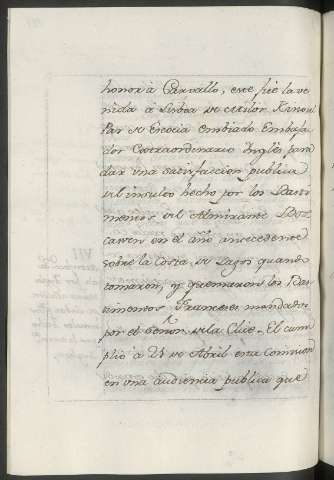 honor à Carvallo, este fue la ve
nida a Lisboa de Milor Kinoul
Par de Escocia embiado Embaxa
dor Extraordinario Inglès para
dar una satisfaccion publica
del insulto hecho por los Basti
mentos del Almirante Bos
cawen en el año antecedente
sobre la Costa de Lagos quando
tomaron, y quemaron los Bas
timentos Franceses mandados
por el Señor de la Clue. El cum
plió à 21 de Abril esta Comision
en una audiencia publica que